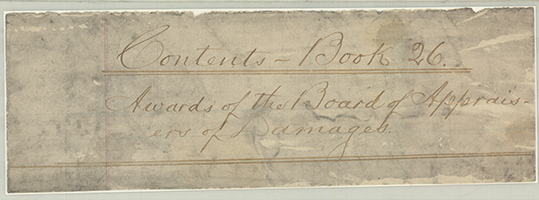 Contents - Book 26.
Awards of the Board of Apprais-
ers of Damages.